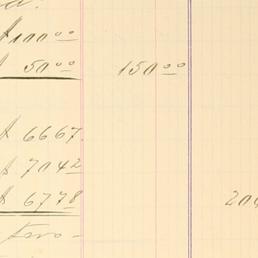 $100.00
$ 50.00 150.00
$ 66 67
$ 70 42
$ 67 78
204
two-